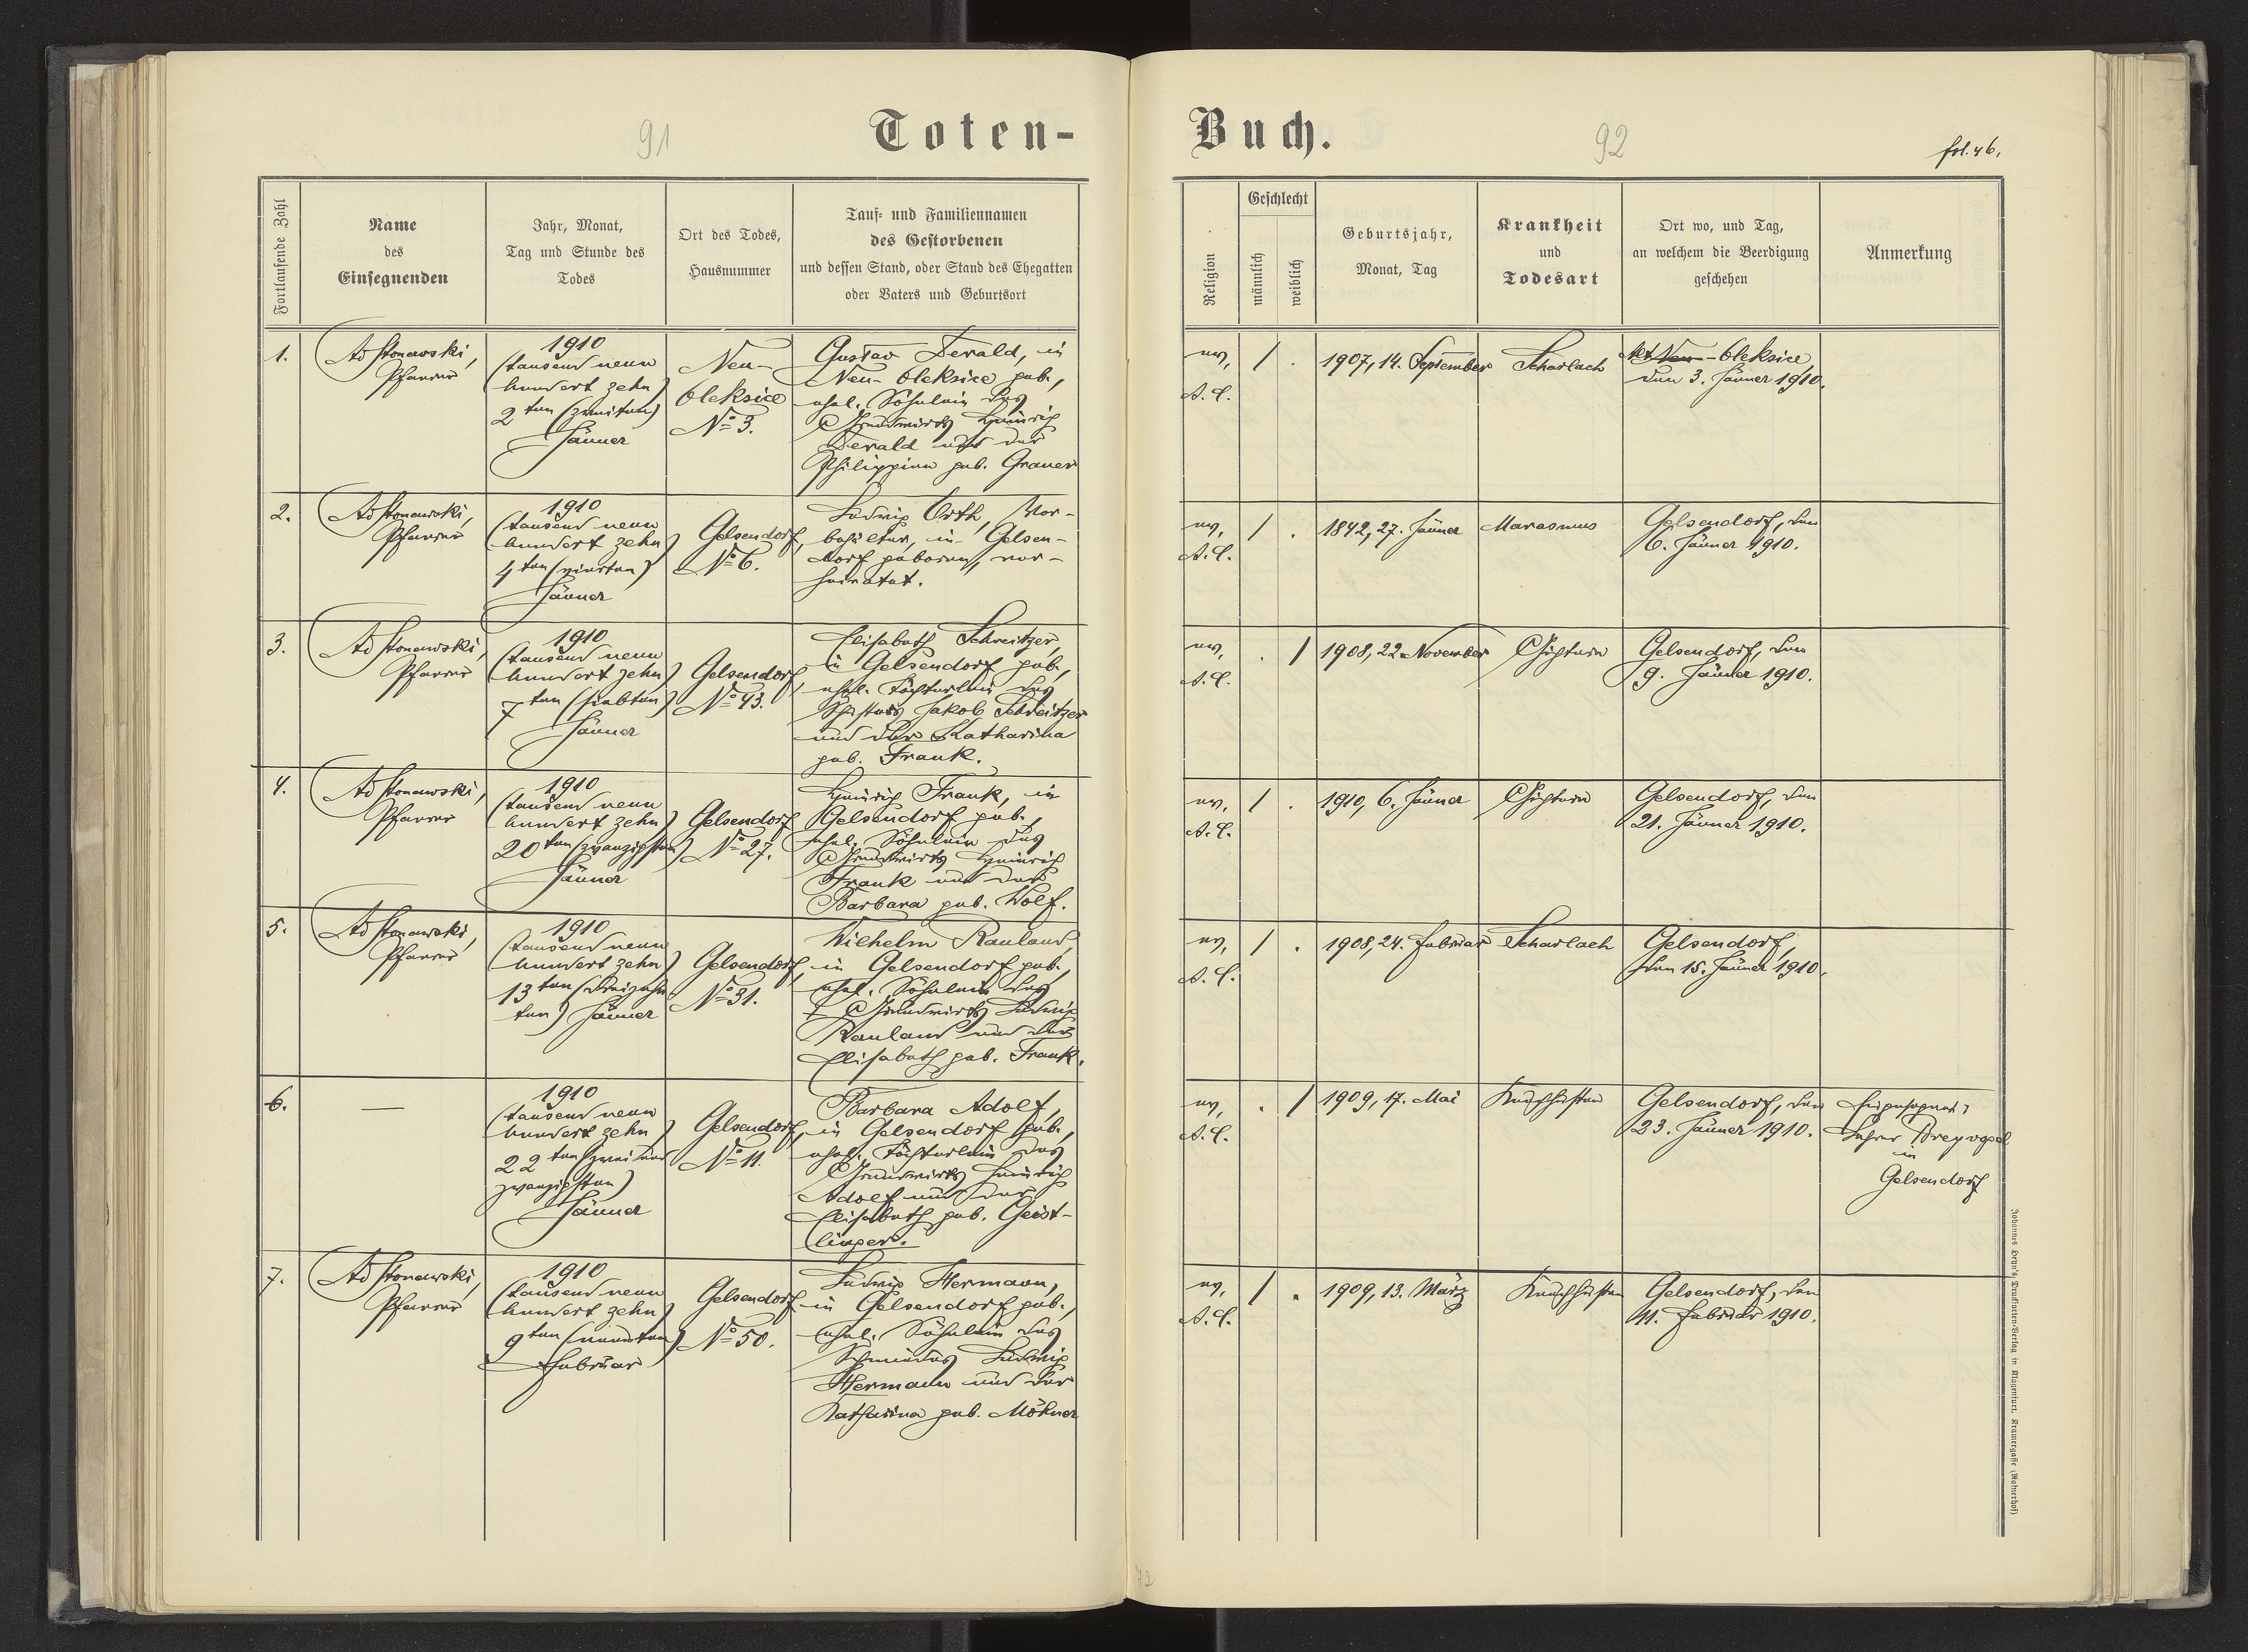 91
Toten-
Fortlaufende Zahl
Name
des
Einsegnenden
Jahr, Monat,
Tag und Stunde des
Todes
Ort des Todes,
Hausnummer
Tauf- und Familiennamen
des Gestorbenen
und dessen Stand, oder Stand des Ehegatten
oder Vaters und Geburtsort
1.
Ad Stonawski,
Pfarrer
1910
(tausend neun
hundert zehn)
2ten (zweiten)
Jänner
Neu-
Oleksice
No 3.
Gustav Derald, in
Neu-Oleksice geb.,
ehel. Söhnlein des
Grundwirts Heinrich
Derald und der
Philippine geb. Grauer
2.
Ad Stonawski,
Pfarrer
1910
(tausend neun
hundert zehn)
4ten (vierten)
Jänner
Gelsendorf,
No 6.
Ludwig Orth, Vor-
behälter, in Gelsen-
dorf geboren, ver-
heiratet.
3.
Ad Stonawski,
Pfarrer
1910
(tausend neun
hundert zehn)
7ten (siebten)
Jänner
Gelsendorf,
No 43.
Elisabeth Schreitzer,
in Gelsendorf geb.,
ehel. Töchterlein des
Jakob Schreitzer
und der Katharina
geb. Frank.
4.
Ad Stonawski,
Pfarrer
1910
(tausend neun
hundert zehn)
20ten (zwanzigsten)
Jänner
Gelsendorf
No 27.
Heinrich Frank, in
Gelsendorf geb.,
ehel. Söhnlein des
Grundwirts Heinrich
Frank und der
Barbara geb. Wolf.
5.
Ad Stonawski,
Pfarrer
1910
(tausend neun
hundert zehn)
13ten (dreizehn
ten) Jänner
Gelsendorf,
No 31.
Wilhelm Rauland,
in Gelsendorf geb.,
ehel. Söhnlein des
† Grundwirts Ludwig
Rauland und der
Elisabeth geb. Frank.
6.
—
1910
(tausend neun
hundert zehn)
22ten (zwei und
zwanzigsten)
Jänner
Gelsendorf,
No 11.
Barbara Adolf,
in Gelsendorf geb.,
ehel. Töchterlein des
Grundwirts Heinrich
Adolf und der
Elisabeth geb. Geist-
linger.
7.
Ad Stonawski,
Pfarrer
1910
(tausend neun
hundert zehn)
9ten (neunten)
Februar
Gelsendorf
No 50.
Ludwig Hermann,
in Gelsendorf geb.,
ehel. Söhnlein des
Schmiedes Ludwig
Hermann und der
Katharina geb. Mökner
Buch.
92
fol. 46.
Religion
Geschlecht
männlich
weiblich
Geburtsjahr,
Monat, Tag
Krankheit
und
Todesart
Ort wo, und Tag,
an welchem die Beerdigung
geschehen
Anmerkung
ev.
A. C.
/ .
1907, 14. September
Scharlach
Alt Neu-Oleksice,
den 3. Jänner 1910.
ev.
A. C.
/ .
1842, 27. Jänner
Marasmus
Gelsendorf, den
6. Jänner 1910.
ev.
A. C.
. /
1908, 22. November
Gichtern
Gelsendorf, den
9. Jänner 1910.
ev.
A. C.
/ .
1910, 6. Jänner
Gichtern
Gelsendorf, den
21. Jänner 1910.
ev.
A. C.
/ .
1908, 24. Februar
Scharlach
Gelsendorf,
den 15. Jänner 1910.
ev.
A. C.
. /
1909, 17. Mai
Keuchhusten
Gelsendorf, den
23. Jänner 1910.
Eingesegnet:
Lehrer Breyvogel
in
Gelsendorf
ev.
A. C.
/ .
1909, 13. März
Keuchhusten
Gelsendorf, den
11. Februar 1910.
Johannes Heyn's Drucksorten-Verlag in Klagenfurt, Kramergasse (Ratnerhof)
72